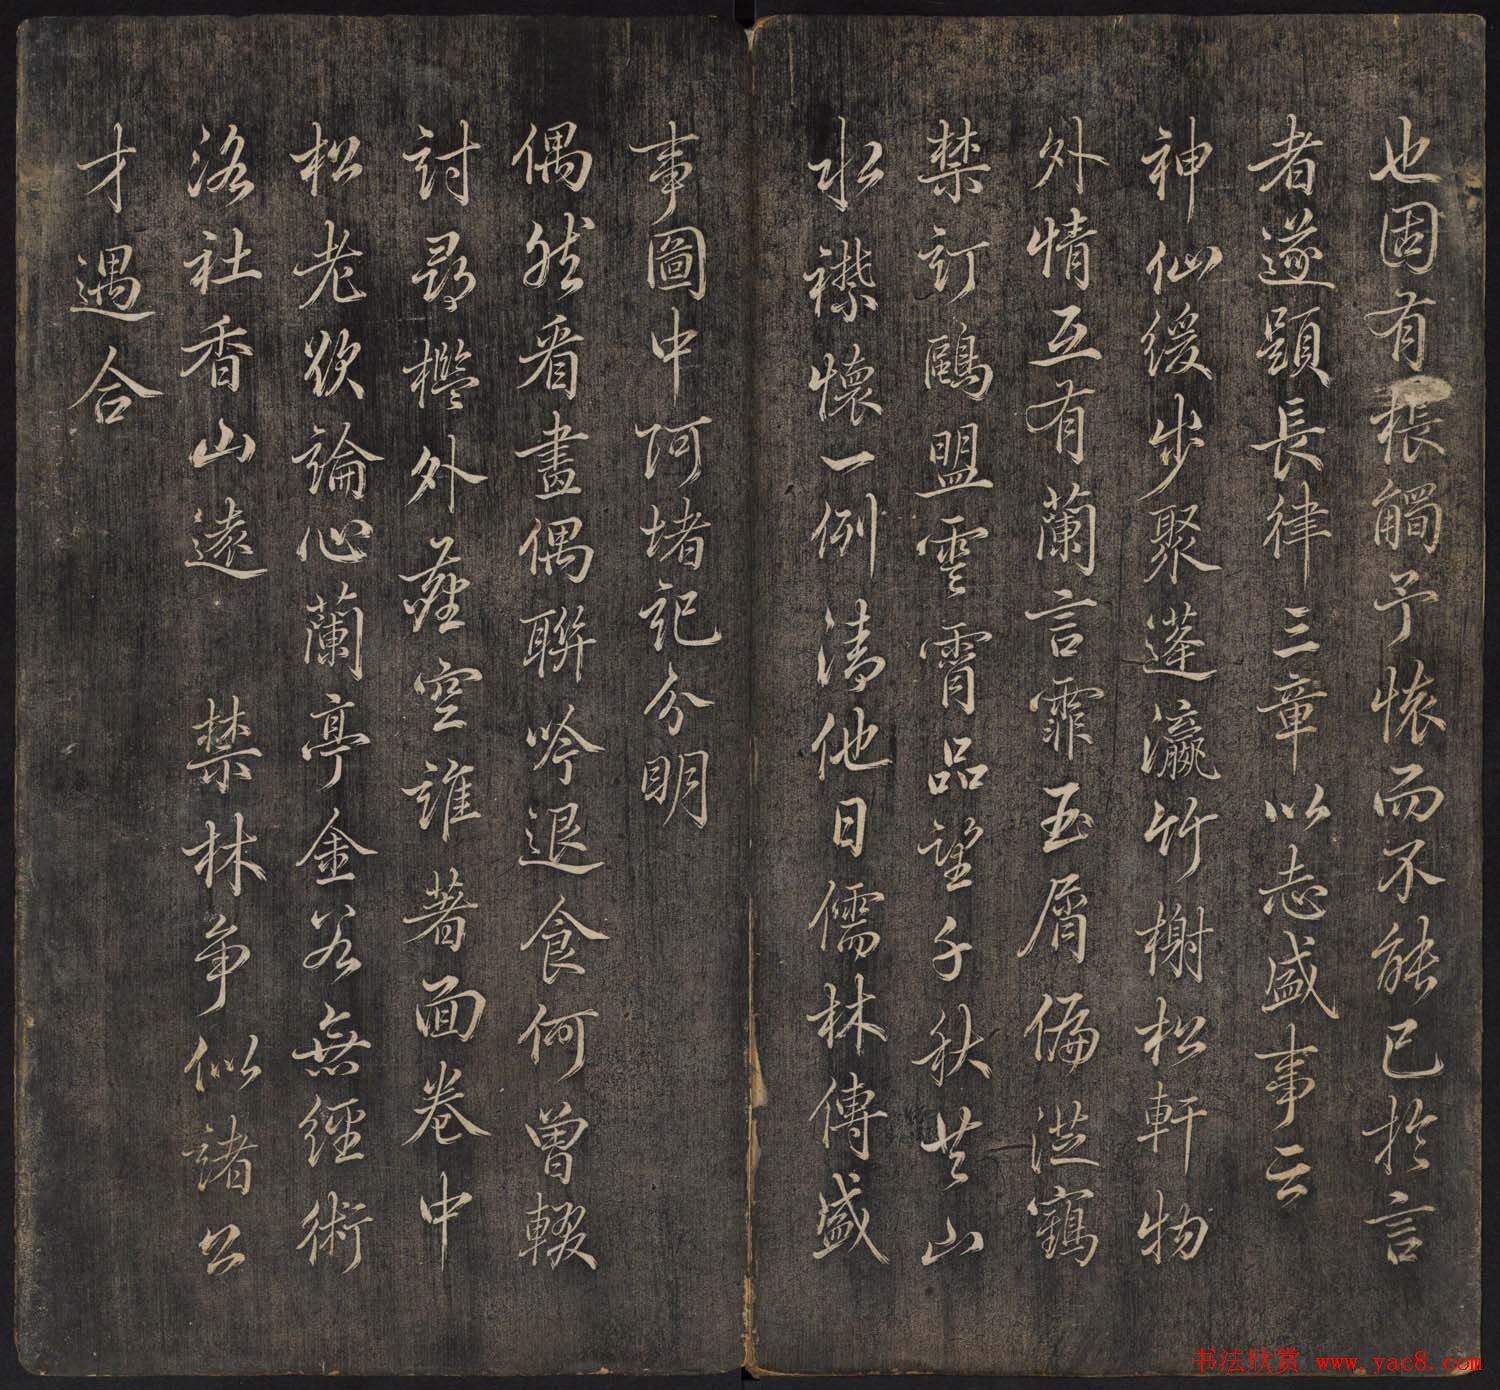 也固有棖觸予懷而不能已於言
者遂題長律三章以志盛事云
神仙緩步聚蓬瀛竹榭松軒物
外情互有蘭言霏玉屑偏從鶴
禁訂鷗盟雲霄品望千秋共山
水襟懷一例清他日儒林傳盛
事圖中阿堵記分明
偶然看畫偶聯吟退食何曾輟
討尋檻外蘿空誰著面卷中
松老欲論心蘭亭金谷無經術
洛社香山遠禁林爭似諸公
才遇合
书法欣赏 www.yac8.com